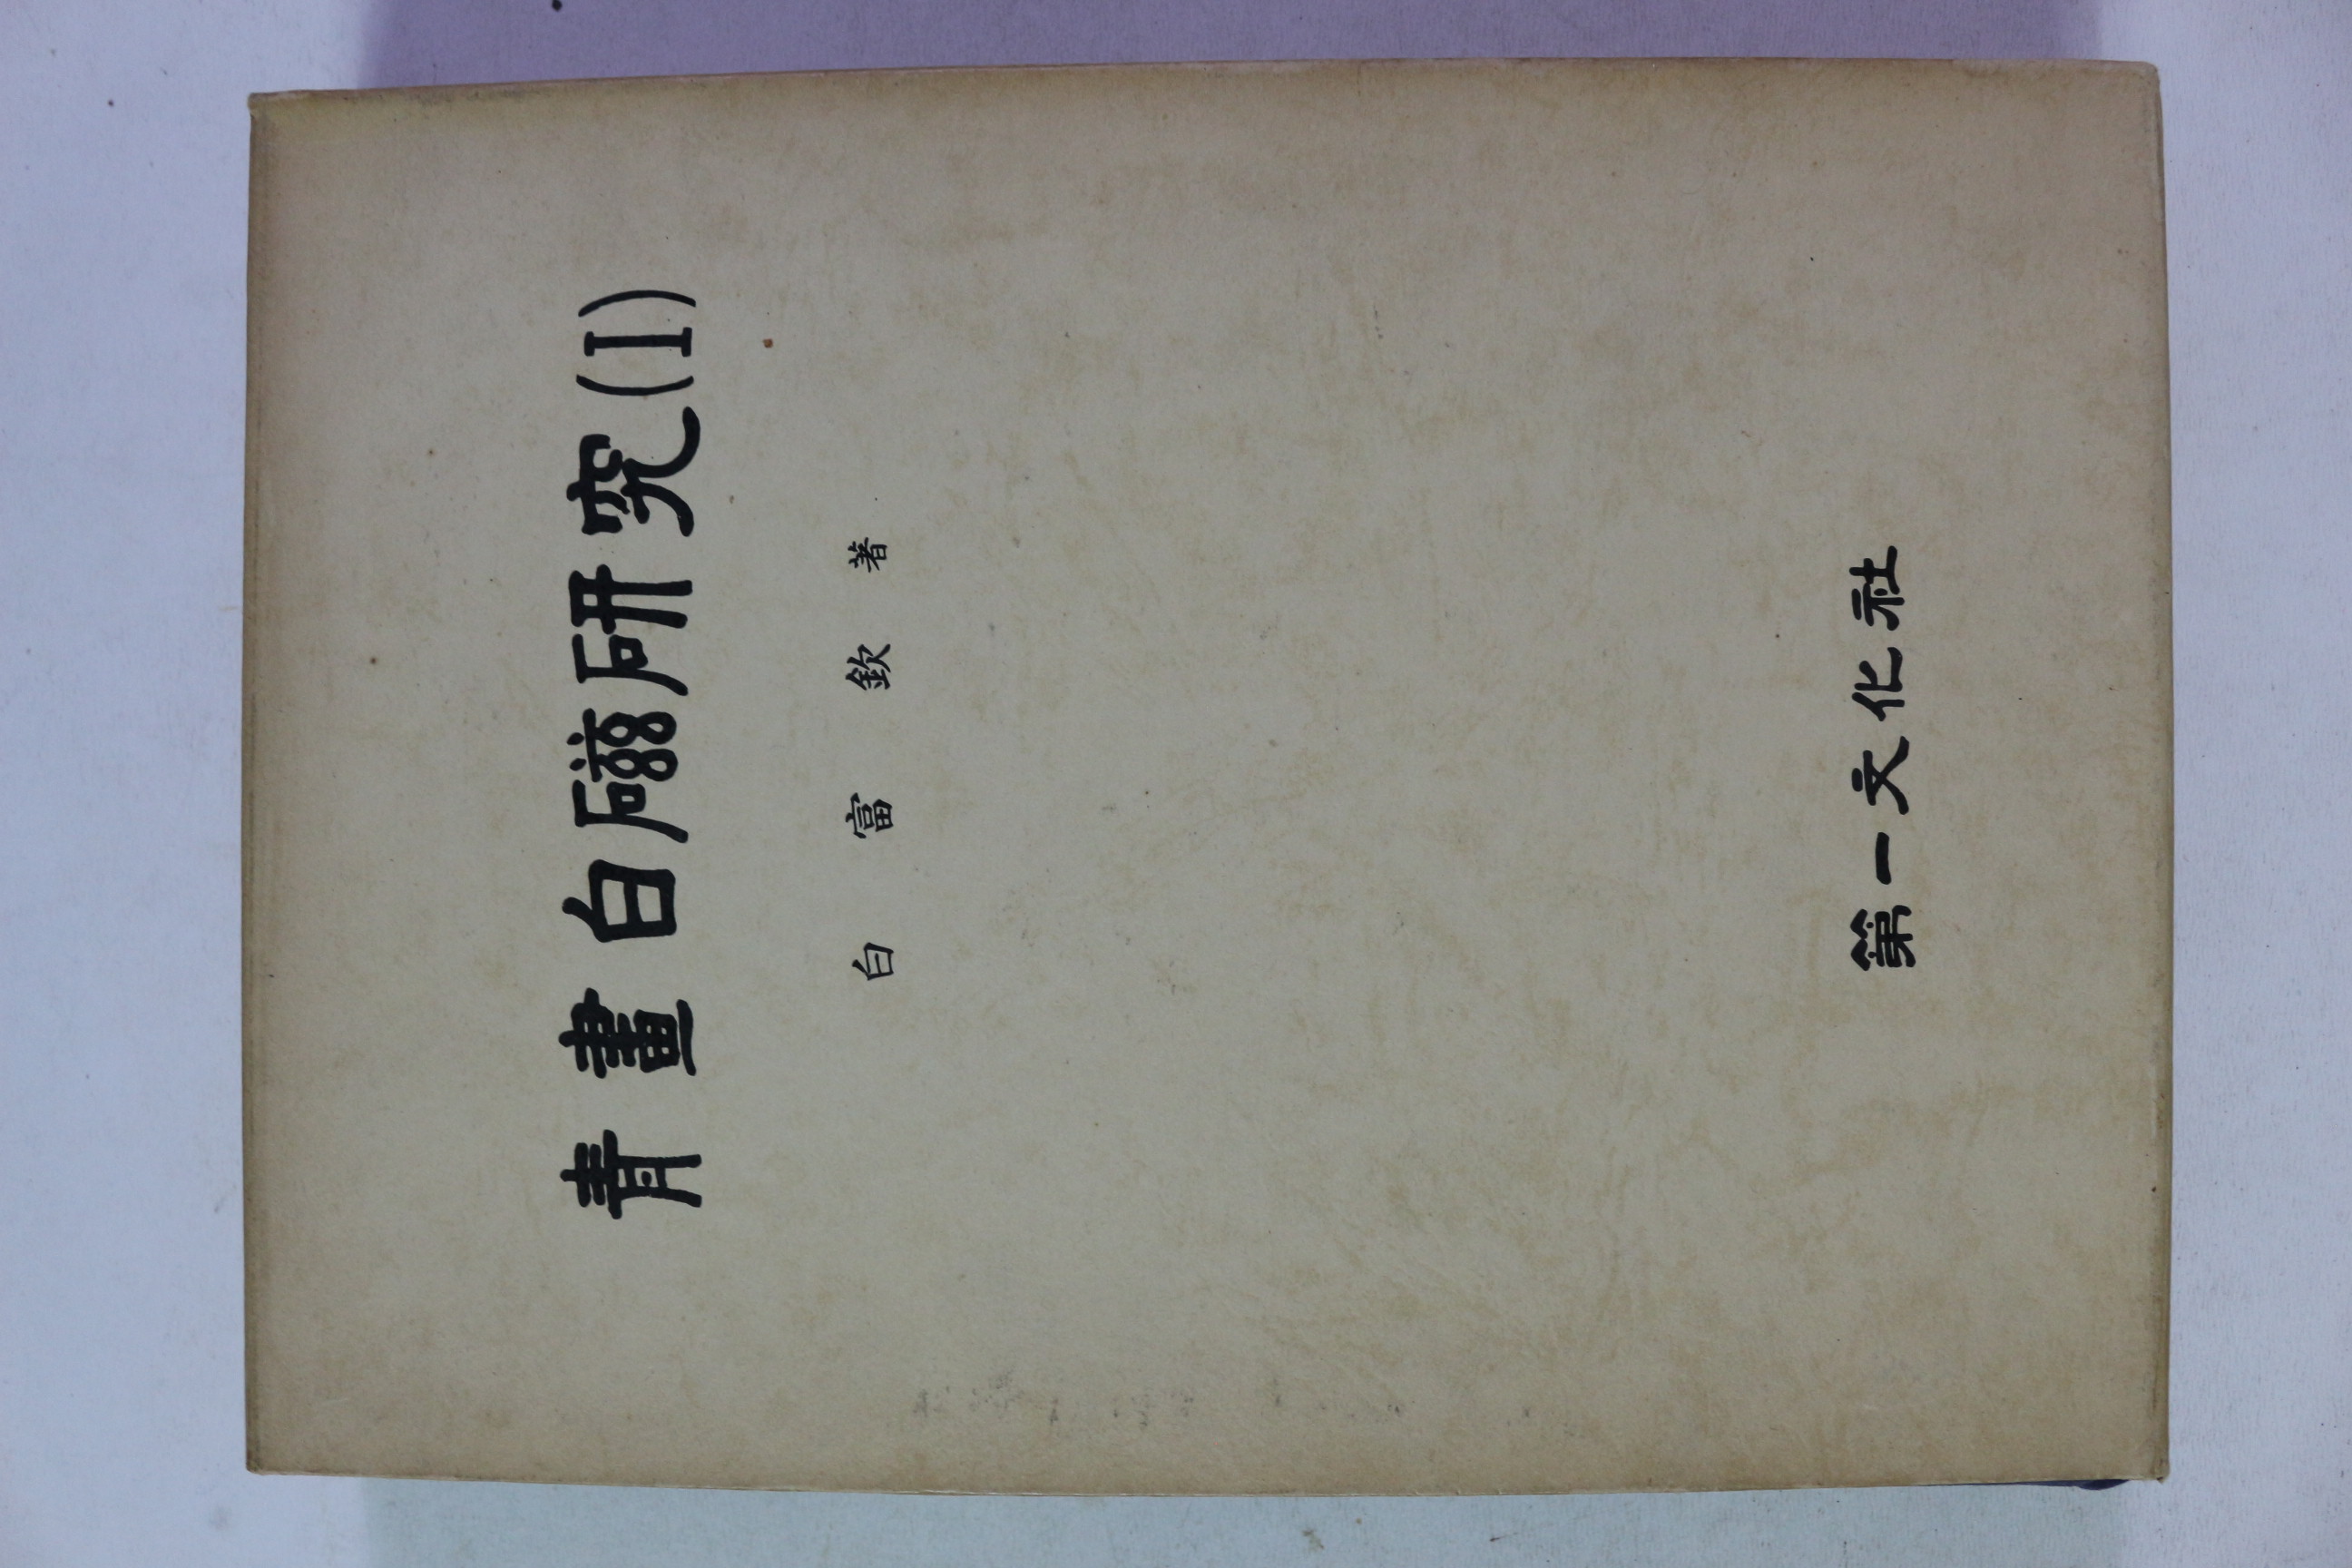 青畫白磁硏究(I)
白富欽 著
第一文化社